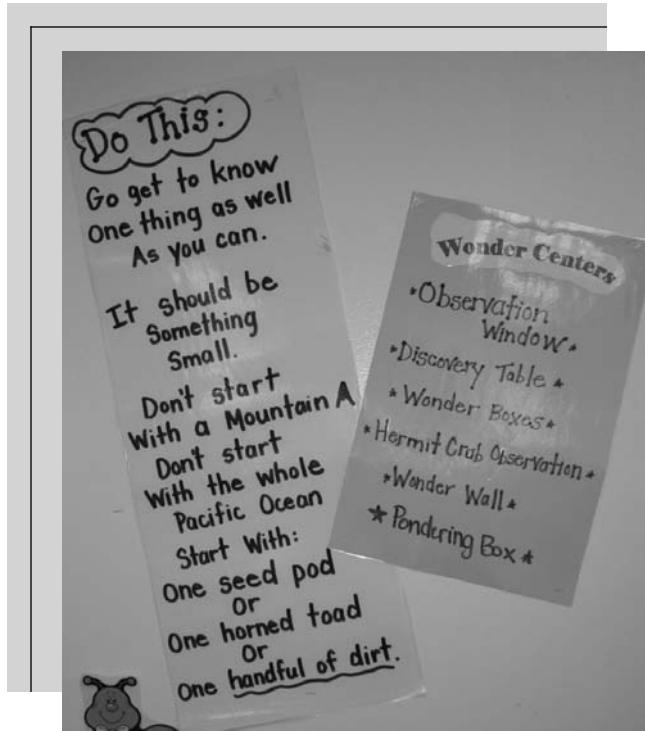 Do This:
Go get to know
One thing as well
As you can.
It should be
Something
Small.
Don't start
With a Mountain
Don't start
With the whole
Pacific Ocean
Start With:
One seed pod
Or
One horned toad
Or
One handful of dirt.
Wonder Centers
*Observation
Window*
*Discovery Table*
*Wonder Boxes*
*Hermit Crab Observation*
*Wonder Wall*
★Pondering Box★